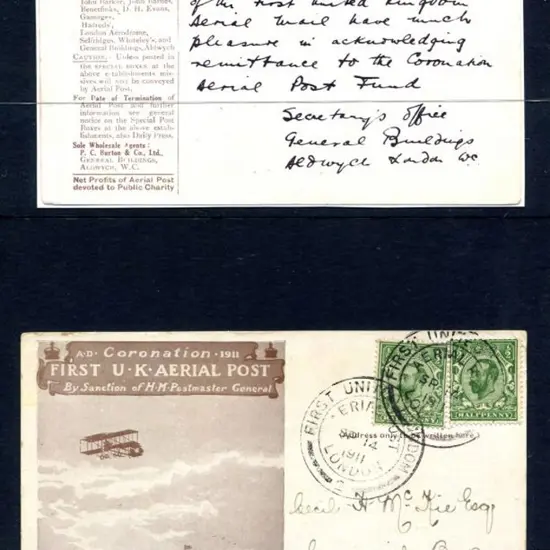 John Barker, John Barnes,
Benetfinks, D. H. Evans,
Gamages,
Harrods,
London Aerodrome,
Selfridges, Whiteley's, and
General Buildings, Aldwych
CAUTION. Unless posted in
the SPECIAL BOXES at the
above establishments mis-
sives will not be conveyed
by Aerial Post.
For Date of Termination of
Aerial Post and further
information see general
notice on the Special Post
Boxes at the above estab-
lishments, also Daily Press.
Sole Wholesale Agents:
P. C. Burton & Co., Ltd.,
GENERAL BUILDINGS,
ALDWYCH, W.C.
Net Profits of Aerial Post
devoted to Public Charity
of the First United Kingdom
Aerial Mail have much
pleasure in acknowledging
remittance to the Coronation
Aerial Post Fund
Secretary's Office
General Buildings
Aldwych London WC
A.D. Coronation 1911
FIRST U.K. AERIAL POST
By Sanction of H.M. Postmaster General
FIRST UNITED KINGDOM
AERIAL POST
SP 14
1911
LONDON
HALFPENNY
(Address only to be written here.)
Cecil H. McKie Esq